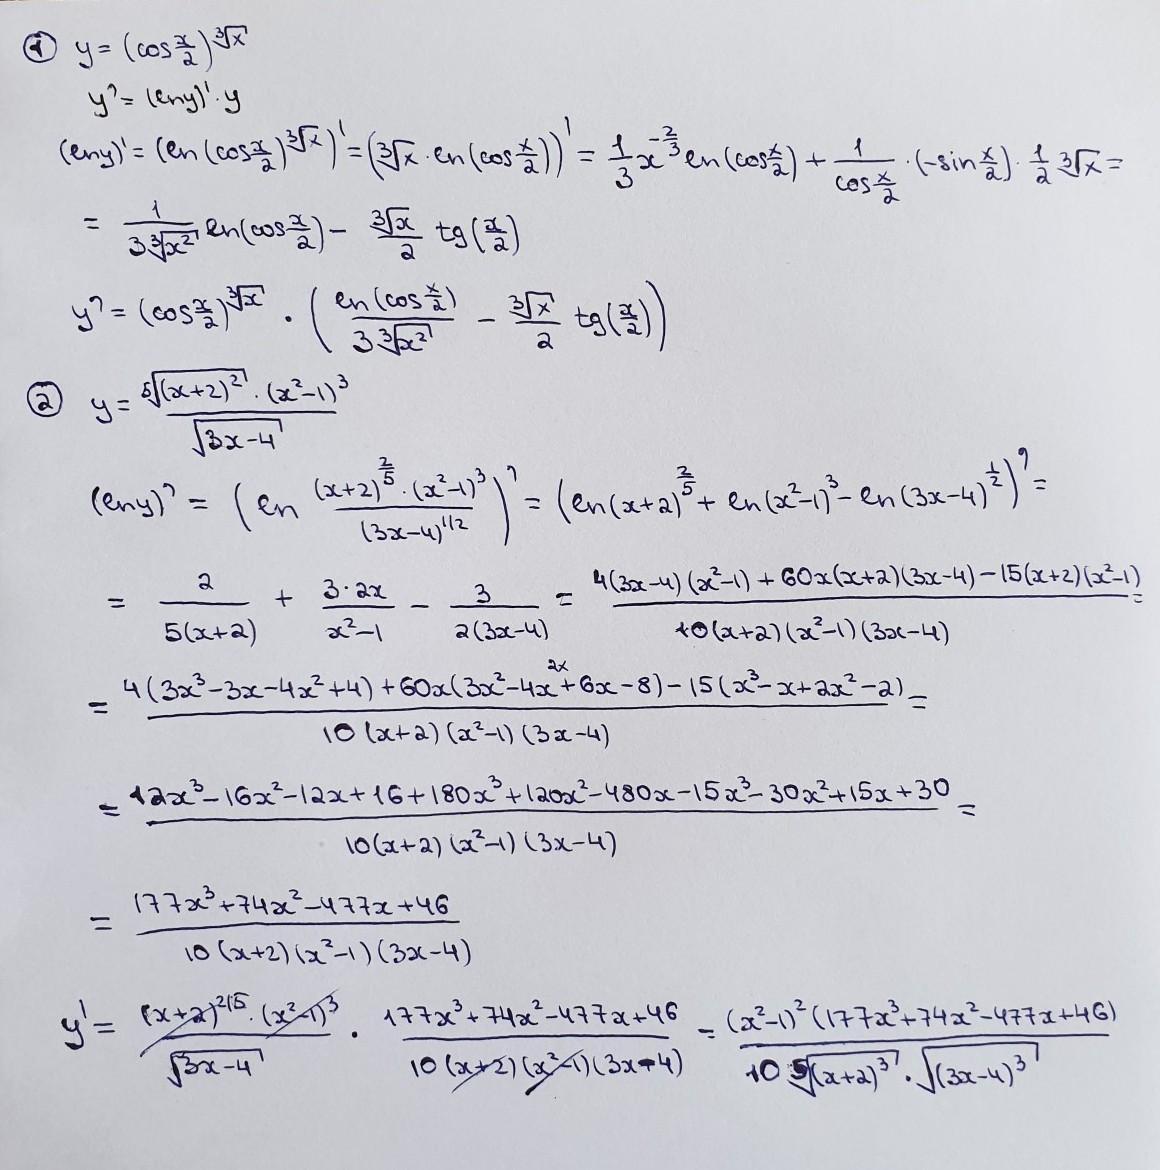 ① y = (cos x/2)^∛x
y' = (lny)' · y
(lny)' = (ln(cos x/2)^∛x)' = (∛x · ln(cos x/2))' = 1/3 x^(-2/3) ln(cos x/2) + 1/(cos x/2) · (-sin x/2) · 1/2 ∛x =
= 1/(3∛x²) ln(cos x/2) - ∛x/2 tg(x/2)
y' = (cos x/2)^∛x · (ln(cos x/2)/(3∛x²) - ∛x/2 tg(x/2))
② y = ⁵√(x+2)² · (x²-1)³ / √(3x-4)
(lny)' = (ln (x+2)^(2/5) · (x²-1)³ / (3x-4)^(1/2))' = (ln(x+2)^(2/5) + ln(x²-1)³ - ln(3x-4)^(1/2))' =
= 2/(5(x+2)) + 3·2x/(x²-1) - 3/(2(3x-4)) = (4(3x-4)(x²-1) + 60x(x+2)(3x-4) - 15(x+2)(x²-1))/(10(x+2)(x²-1)(3x-4)) =
2x
= (4(3x³-3x-4x²+4) + 60x(3x²-4x+6x-8) - 15(x³-x+2x²-2))/(10(x+2)(x²-1)(3x-4)) =
= (12x³-16x²-12x+16+180x³+120x²-480x-15x³-30x²+15x+30)/(10(x+2)(x²-1)(3x-4)) =
= (177x³+74x²-477x+46)/(10(x+2)(x²-1)(3x-4))
y' = (x+2)^(2/5) · (x²-1)³/√(3x-4) · (177x³+74x²-477x+46)/(10(x+2)(x²-1)(3x-4)) = (x²-1)²(177x³+74x²-477x+46)/(10 ⁵√(x+2)³ · √(3x-4)³)